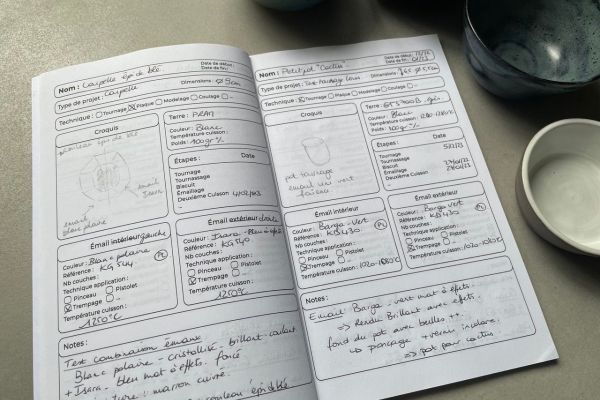 Nom : Coupelle épi de blé
Date de début :
Date de fin :
Type de projet : coupelle
Dimensions : Ø 9cm
Technique : Tournage Plaque Modelage Coulage
Croquis
rouleau épi de blé
émail Isara
émail blanc polaire
Terre : PRAI
Couleur : Blanc
Température cuisson :
Poids : 100gr
Étapes : Date
Tournage
Tournassage
Biscuit
Émaillage
Deuxième Cuisson
Émail intérieur gauche
Couleur : Blanc polaire
Référence : KG 544
Nb couches :
Technique application :
Pinceau Pistolet
Trempage
Température cuisson :
1250°C
Émail extérieur droite
Couleur : Isara - Bleu à effets
Référence :
Nb couches :
Technique application :
Pinceau Pistolet
Trempage
Température cuisson :
1250°C
Notes :
Test combinaison émaux
Blanc polaire - cristallisé - brillant coulant
+ Isara - bleu mat à effets. foncé
marron cuivré
rouleau épi de blé
Nom : Petit pot "Cactus"
Date de début :
Date de fin :
Type de projet : Test tournage
Dimensions :
Technique : Tournage Plaque Modelage Coulage
Croquis
pot tournage
émail mi vert
Terre :
Couleur : Blanc
Température cuisson :
Poids : 400gr
Étapes : Date
Tournage
Tournassage
Biscuit
Émaillage
Deuxième Cuisson
Émail intérieur
Couleur : Barga vert
Référence : KB 430
Nb couches :
Technique application :
Pinceau Pistolet
Trempage
Température cuisson :
Émail extérieur
Couleur : Barga vert
Référence : KB 430
Nb couches :
Technique application :
Pinceau Pistolet
Trempage
Température cuisson :
Notes :
Email Barga - vert mat à effets.
⇒ Rendu Brillant avec effets.
fond du pot avec bulles ++.
↳ ponçage + vernis incolore.
⇒ pot pour cactus